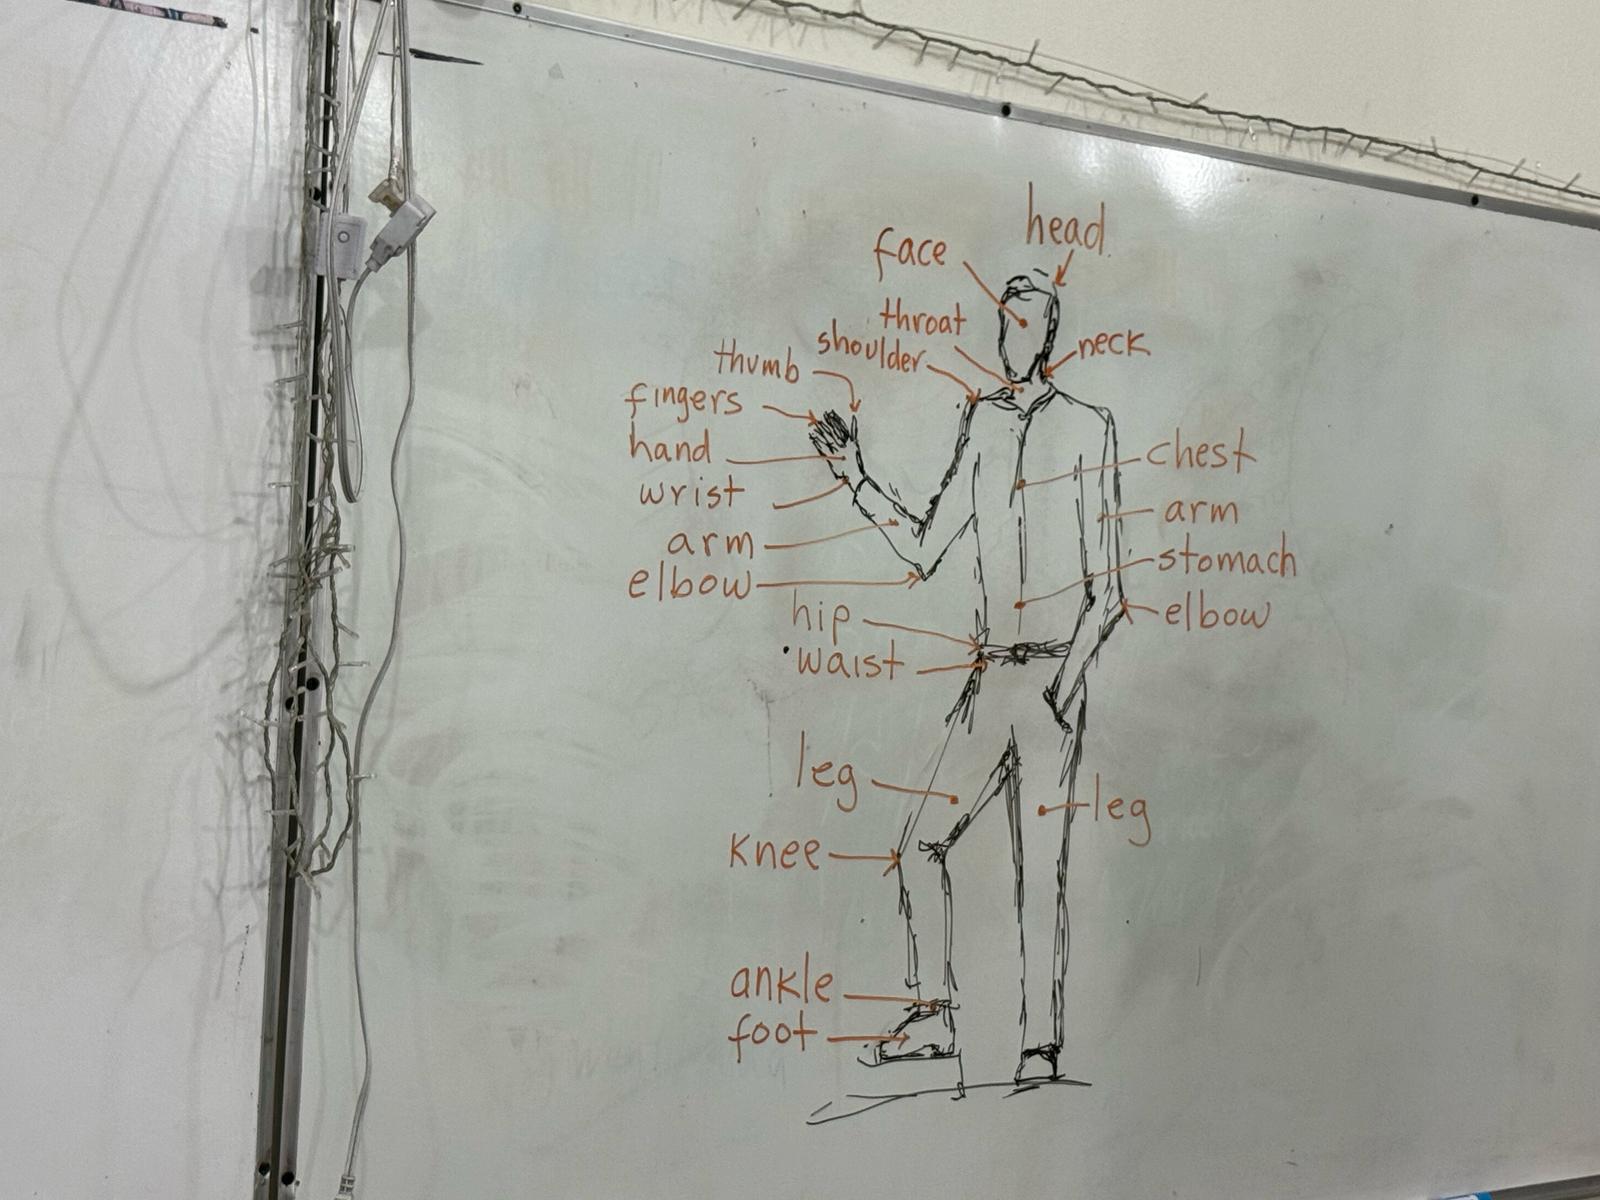 head
face
throat
shoulder
neck
thumb
fingers
hand
wrist
arm
elbow
chest
arm
stomach
elbow
hip
waist
leg
leg
knee
ankle
foot